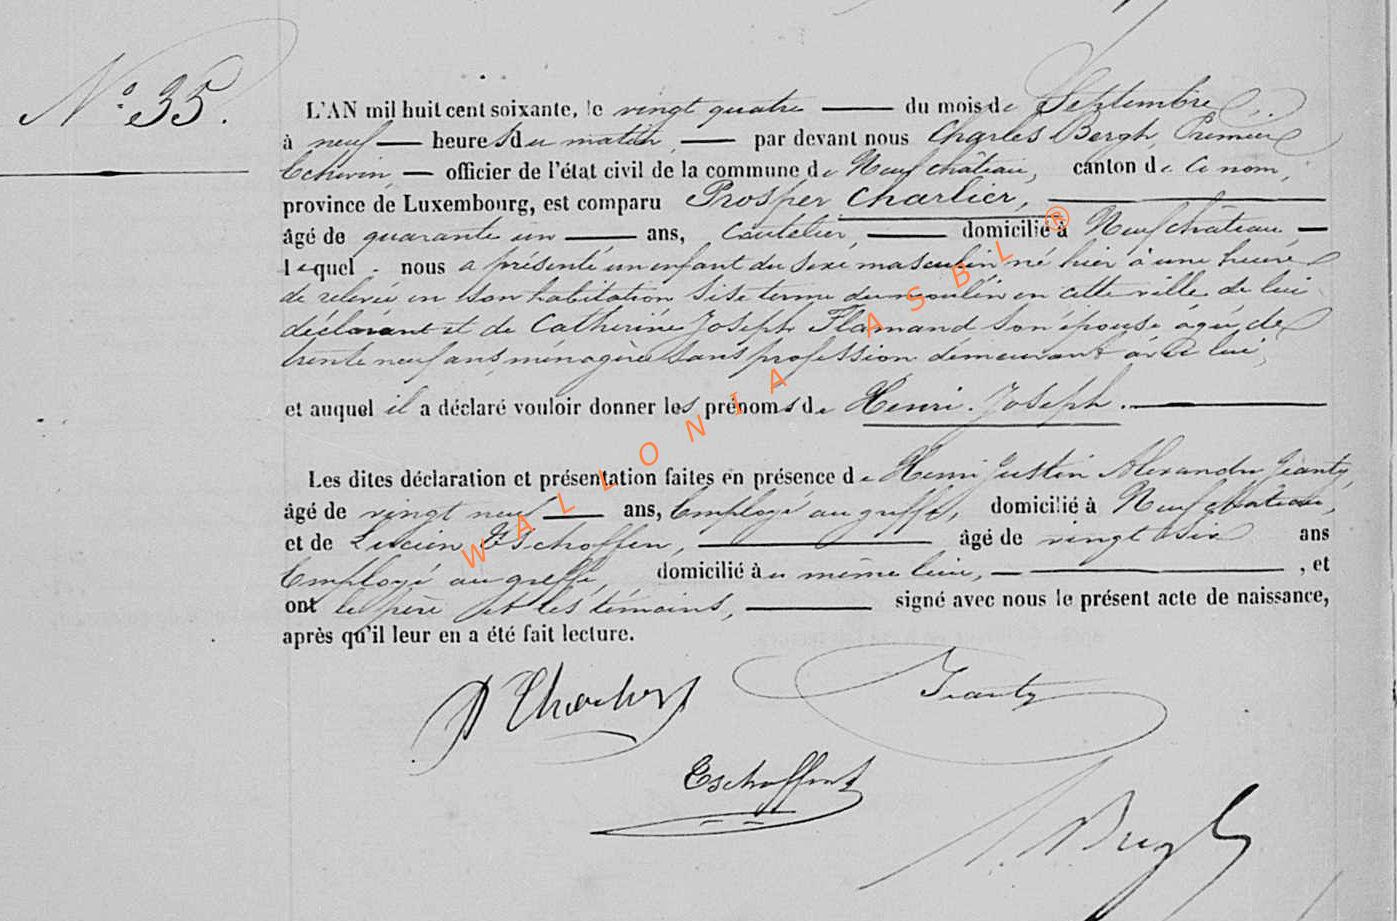 N° 35.
L'AN mil huit cent soixante, le vingt quatre du mois de Septembre
à neuf heures du matin, par devant nous Charles Bergh, Premier
Echevin, officier de l'état civil de la commune de Neufchâteau, canton de ce nom,
province de Luxembourg, est comparu Prosper Charlier,
âgé de quarante un ans, Coutelier, domicilié à Neufchâteau,
lequel nous a présenté un enfant du sexe masculin né hier à une heure
de relevée en son habitation sise terme du moulin en cette ville de lui
déclarant et de Catherine Joseph Flamand son épouse âgée de
trente neuf ans, ménagère sans profession demeurant avec lui,
et auquel il a déclaré vouloir donner les prénoms de Henri Joseph.
Les dites déclaration et présentation faites en présence de Henri Justin Alexandre Jeanty,
âgé de vingt neuf ans, Employé au greffe, domicilié à Neufchâteau,
et de Lucien Eschoffen, âgé de vingt six ans
Employé au greffe, domicilié au même lieu, , et
ont le père et les témoins, signé avec nous le présent acte de naissance,
après qu'il leur en a été fait lecture.
P Charlier
Jeanty
Eschoffen
WALLONIA ASBL ®